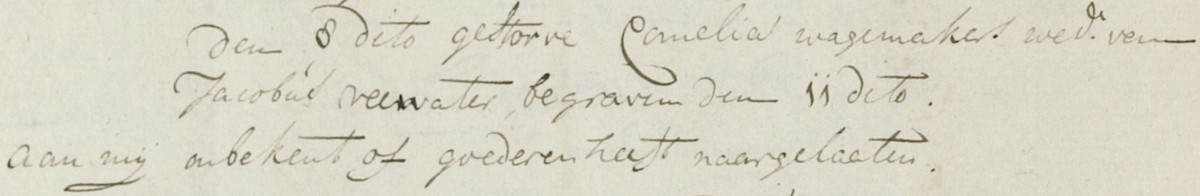 den 8 dito gestorve Cornelia wagemakers wed.e van
Jacobus reewater begraven den 11 dito.
aan mij onbekent of goederen heeft naargelaaten.